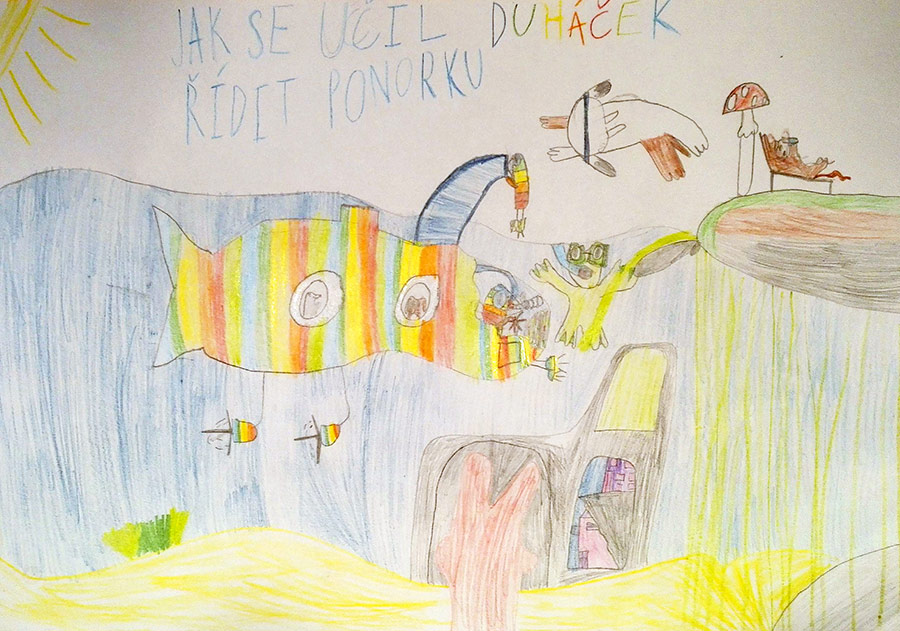 JAK SE UČIL DUHÁČEK
ŘÍDIT PONORKU